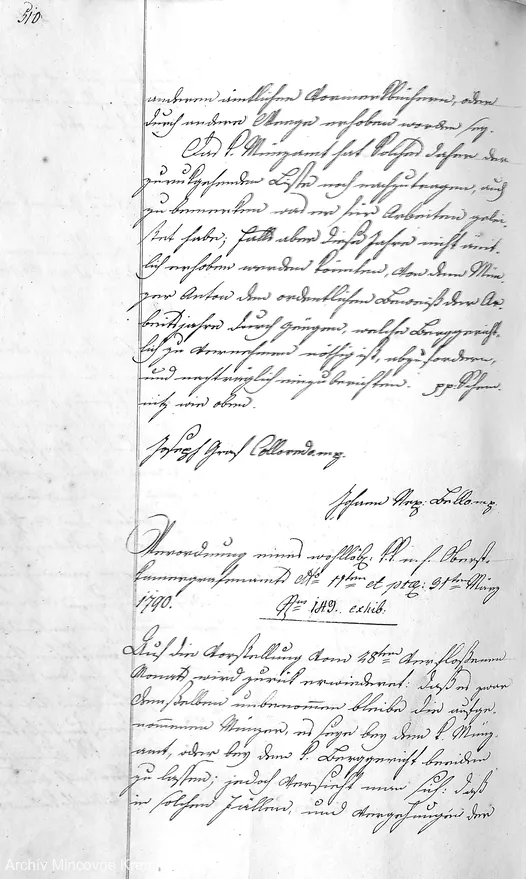 510
anderen ämtlichen Vormerkbüchern, oder
durch andere Wege erhoben worden sey.
Das k. Münzamt hat Solches daher der
zurukgehenden Liste noch nachzutragen, auch
zu bemerken was er für Arbeiten gelei-
stet habe; falls aber diese Jahre nicht amt-
lich erhoben werden könnten, von dem Mün-
zer Anton den ordentlichen Beweiß der Ar-
beitsjahre durch Zeugen, welche Berggericht-
lich zu vernehmen nöthig ist, abzufordern,
und nachträglich einzuberichten. pp. Schem-
nitz wie oben.
Joseph Graf Colloredo mp.
Johann Bello mp.
Verordnung eines wohllöbl. k.k. n. h. Oberst-
kammergrafenamts dto 17ten et prae: 31ten März
1790. Nro 149. exhib.
Auf die Vorstellung vom 28ten verflossenen
Monats wird zurück erwiederet: daß es zwar
demselben unbenommen bleibe die aufge-
nommenen Münzer, es seye bey dem k. Münz-
amt, oder bey dem k. Berggericht beeiden
zu lassen; jedoch versieht man sich: daß
in solchen Fällen, und Vergehungen der
Archiv Mincovne Krem